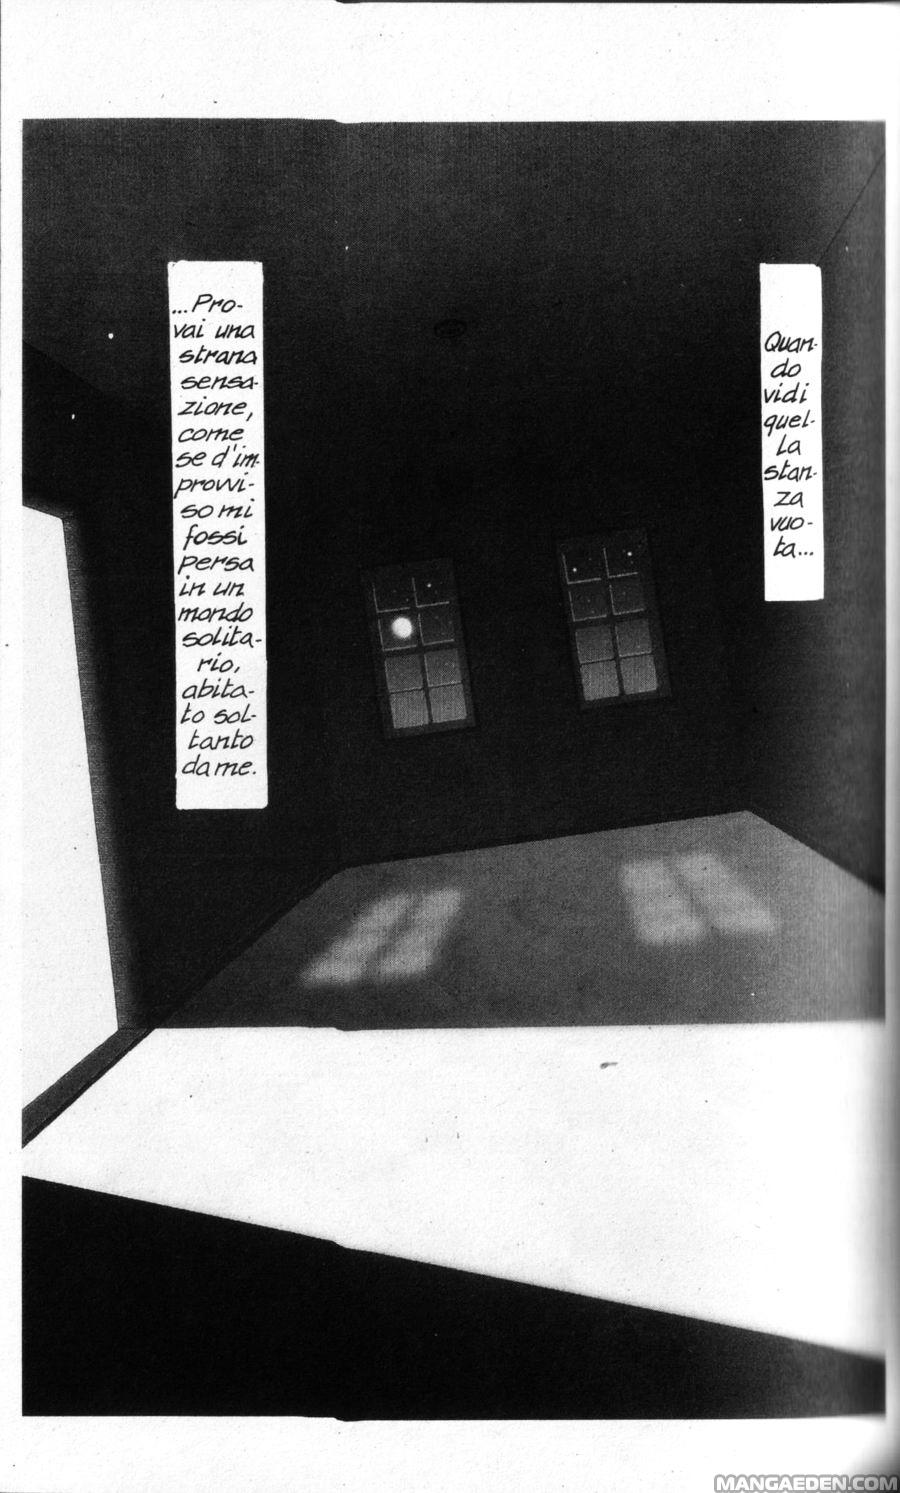 Quan-
do
vidi
quel-
la
stan-
za
vuo-
ta...
...Pro-
vai una
strana
sensa-
zione,
come
se d'im-
provvi-
so mi
fossi
persa
in un
mondo
solita-
rio,
abita-
to sol-
tanto
da me.
MANGAEDEN.COM